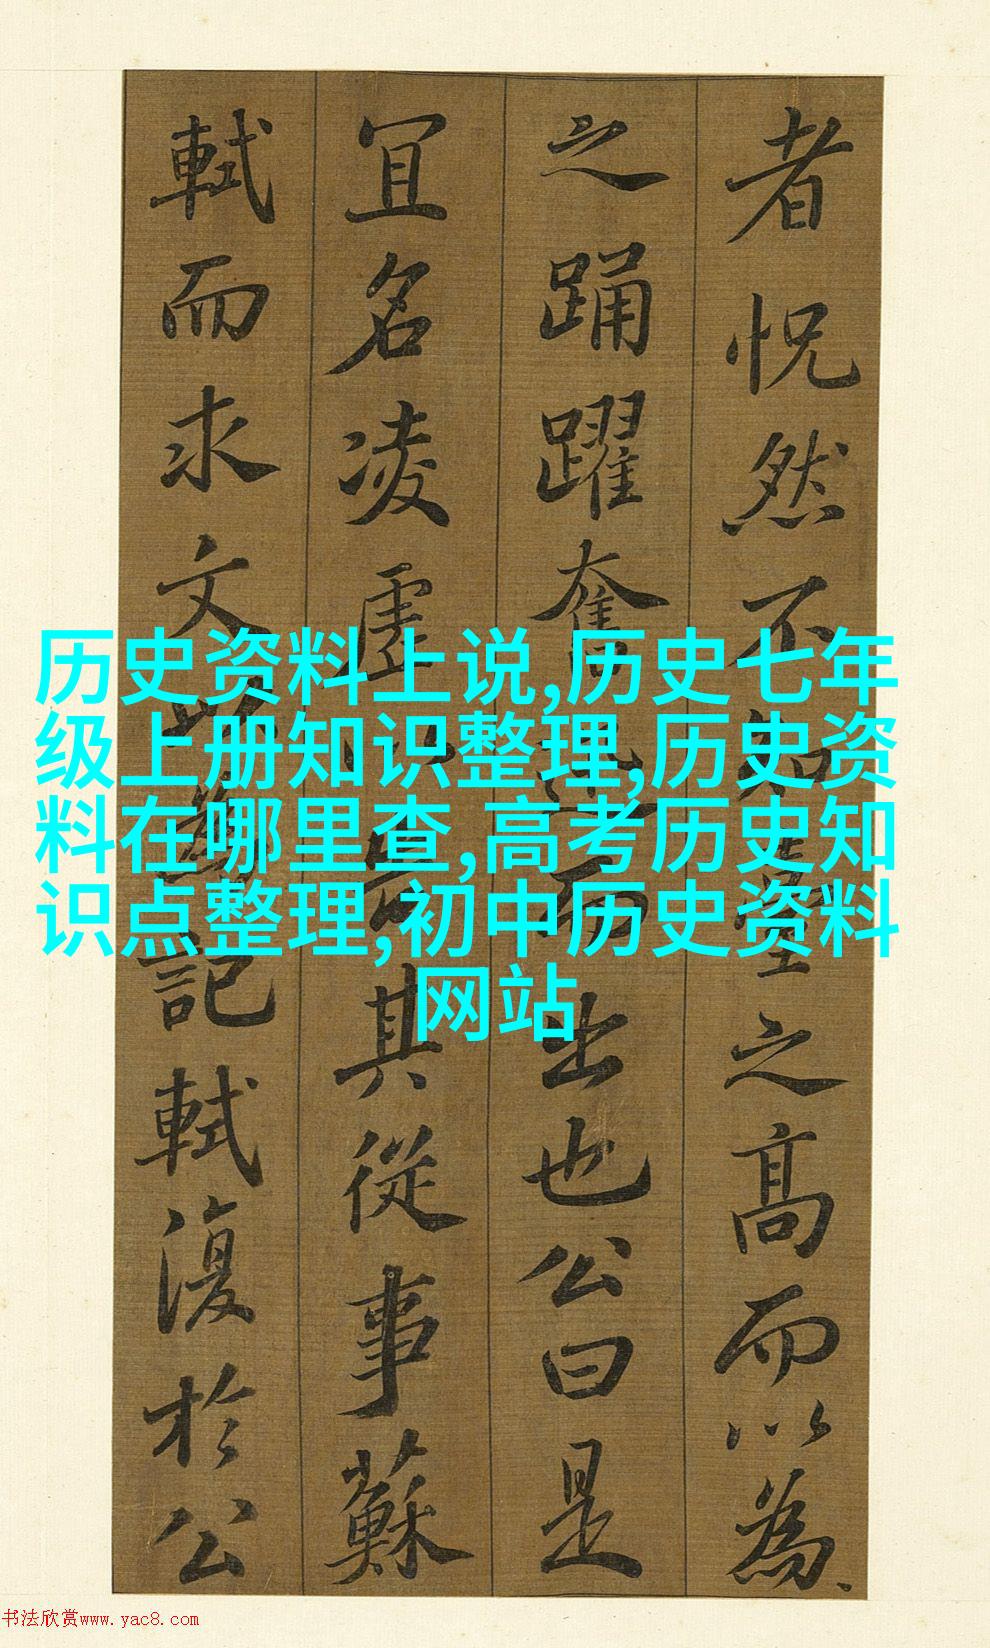 者怳然不知臺之高而以為
之踊躍奮迅而出也公曰是
宜名凌虛以告其從事蘇
軾而求文以為記軾復於公
历史资料上说,历史七年
级上册知识整理,历史资
料在哪里查,高考历史知
识点整理,初中历史资料
网站
书法欣赏www.yac8.com